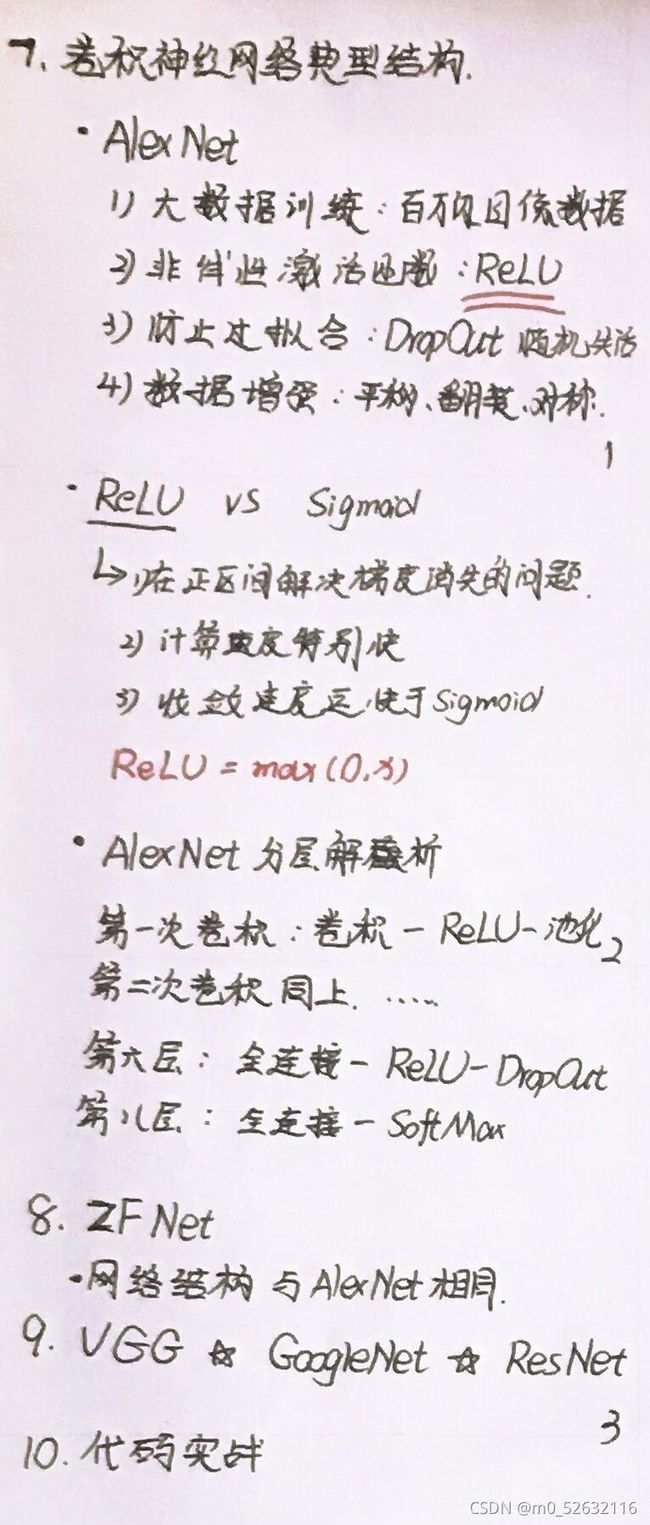 7. 卷积神经网络典型结构.
· AlexNet
1) 大数据训练：百万级图像数据
2) 非线性激活函数：ReLU
3) 防止过拟合：DropOut 随机失活
4) 数据增强：平移、翻转、对称.
1
· ReLU vs Sigmoid
↳ 1)在正区间解决梯度消失的问题.
2) 计算速度特别快
3) 收敛速度远快于Sigmoid
ReLU = max(0,x)
· AlexNet 分层解析
第一次卷积：卷积-ReLU-池化
2
第二次卷积同上. .....
第六层：全连接-ReLU-DropOut
第八层：全连接-SoftMax
8. ZFNet
·网络结构与AlexNet相同.
9. VGG ☆ GoogleNet ☆ ResNet
3
10. 代码实战
CSDN @m0_52632116